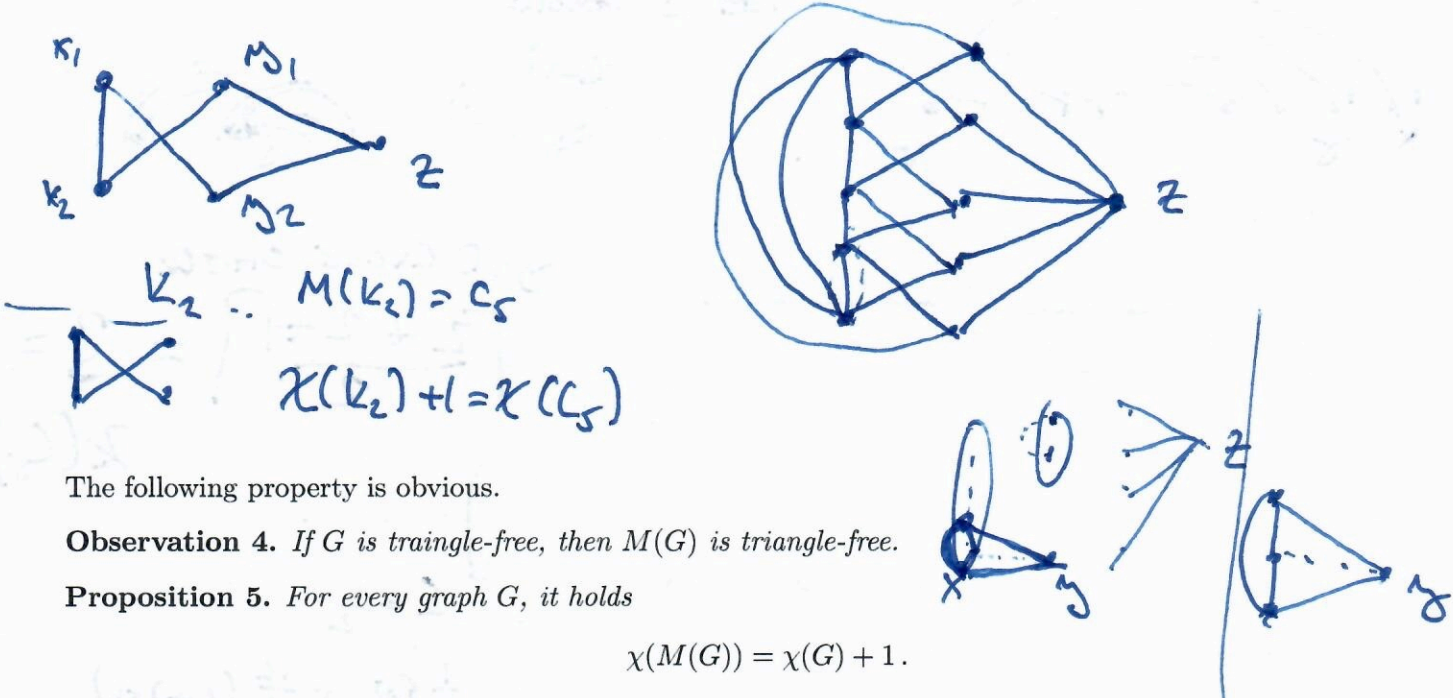 x₁ y₁
x₂ y₂ z
z
K₂ .. M(K₂) = C₅
χ(K₂) + 1 = χ(C₅)
z
x y y
The following property is obvious.
Observation 4. If G is traingle-free, then M(G) is triangle-free.
Proposition 5. For every graph G, it holds
χ(M(G)) = χ(G) + 1 .